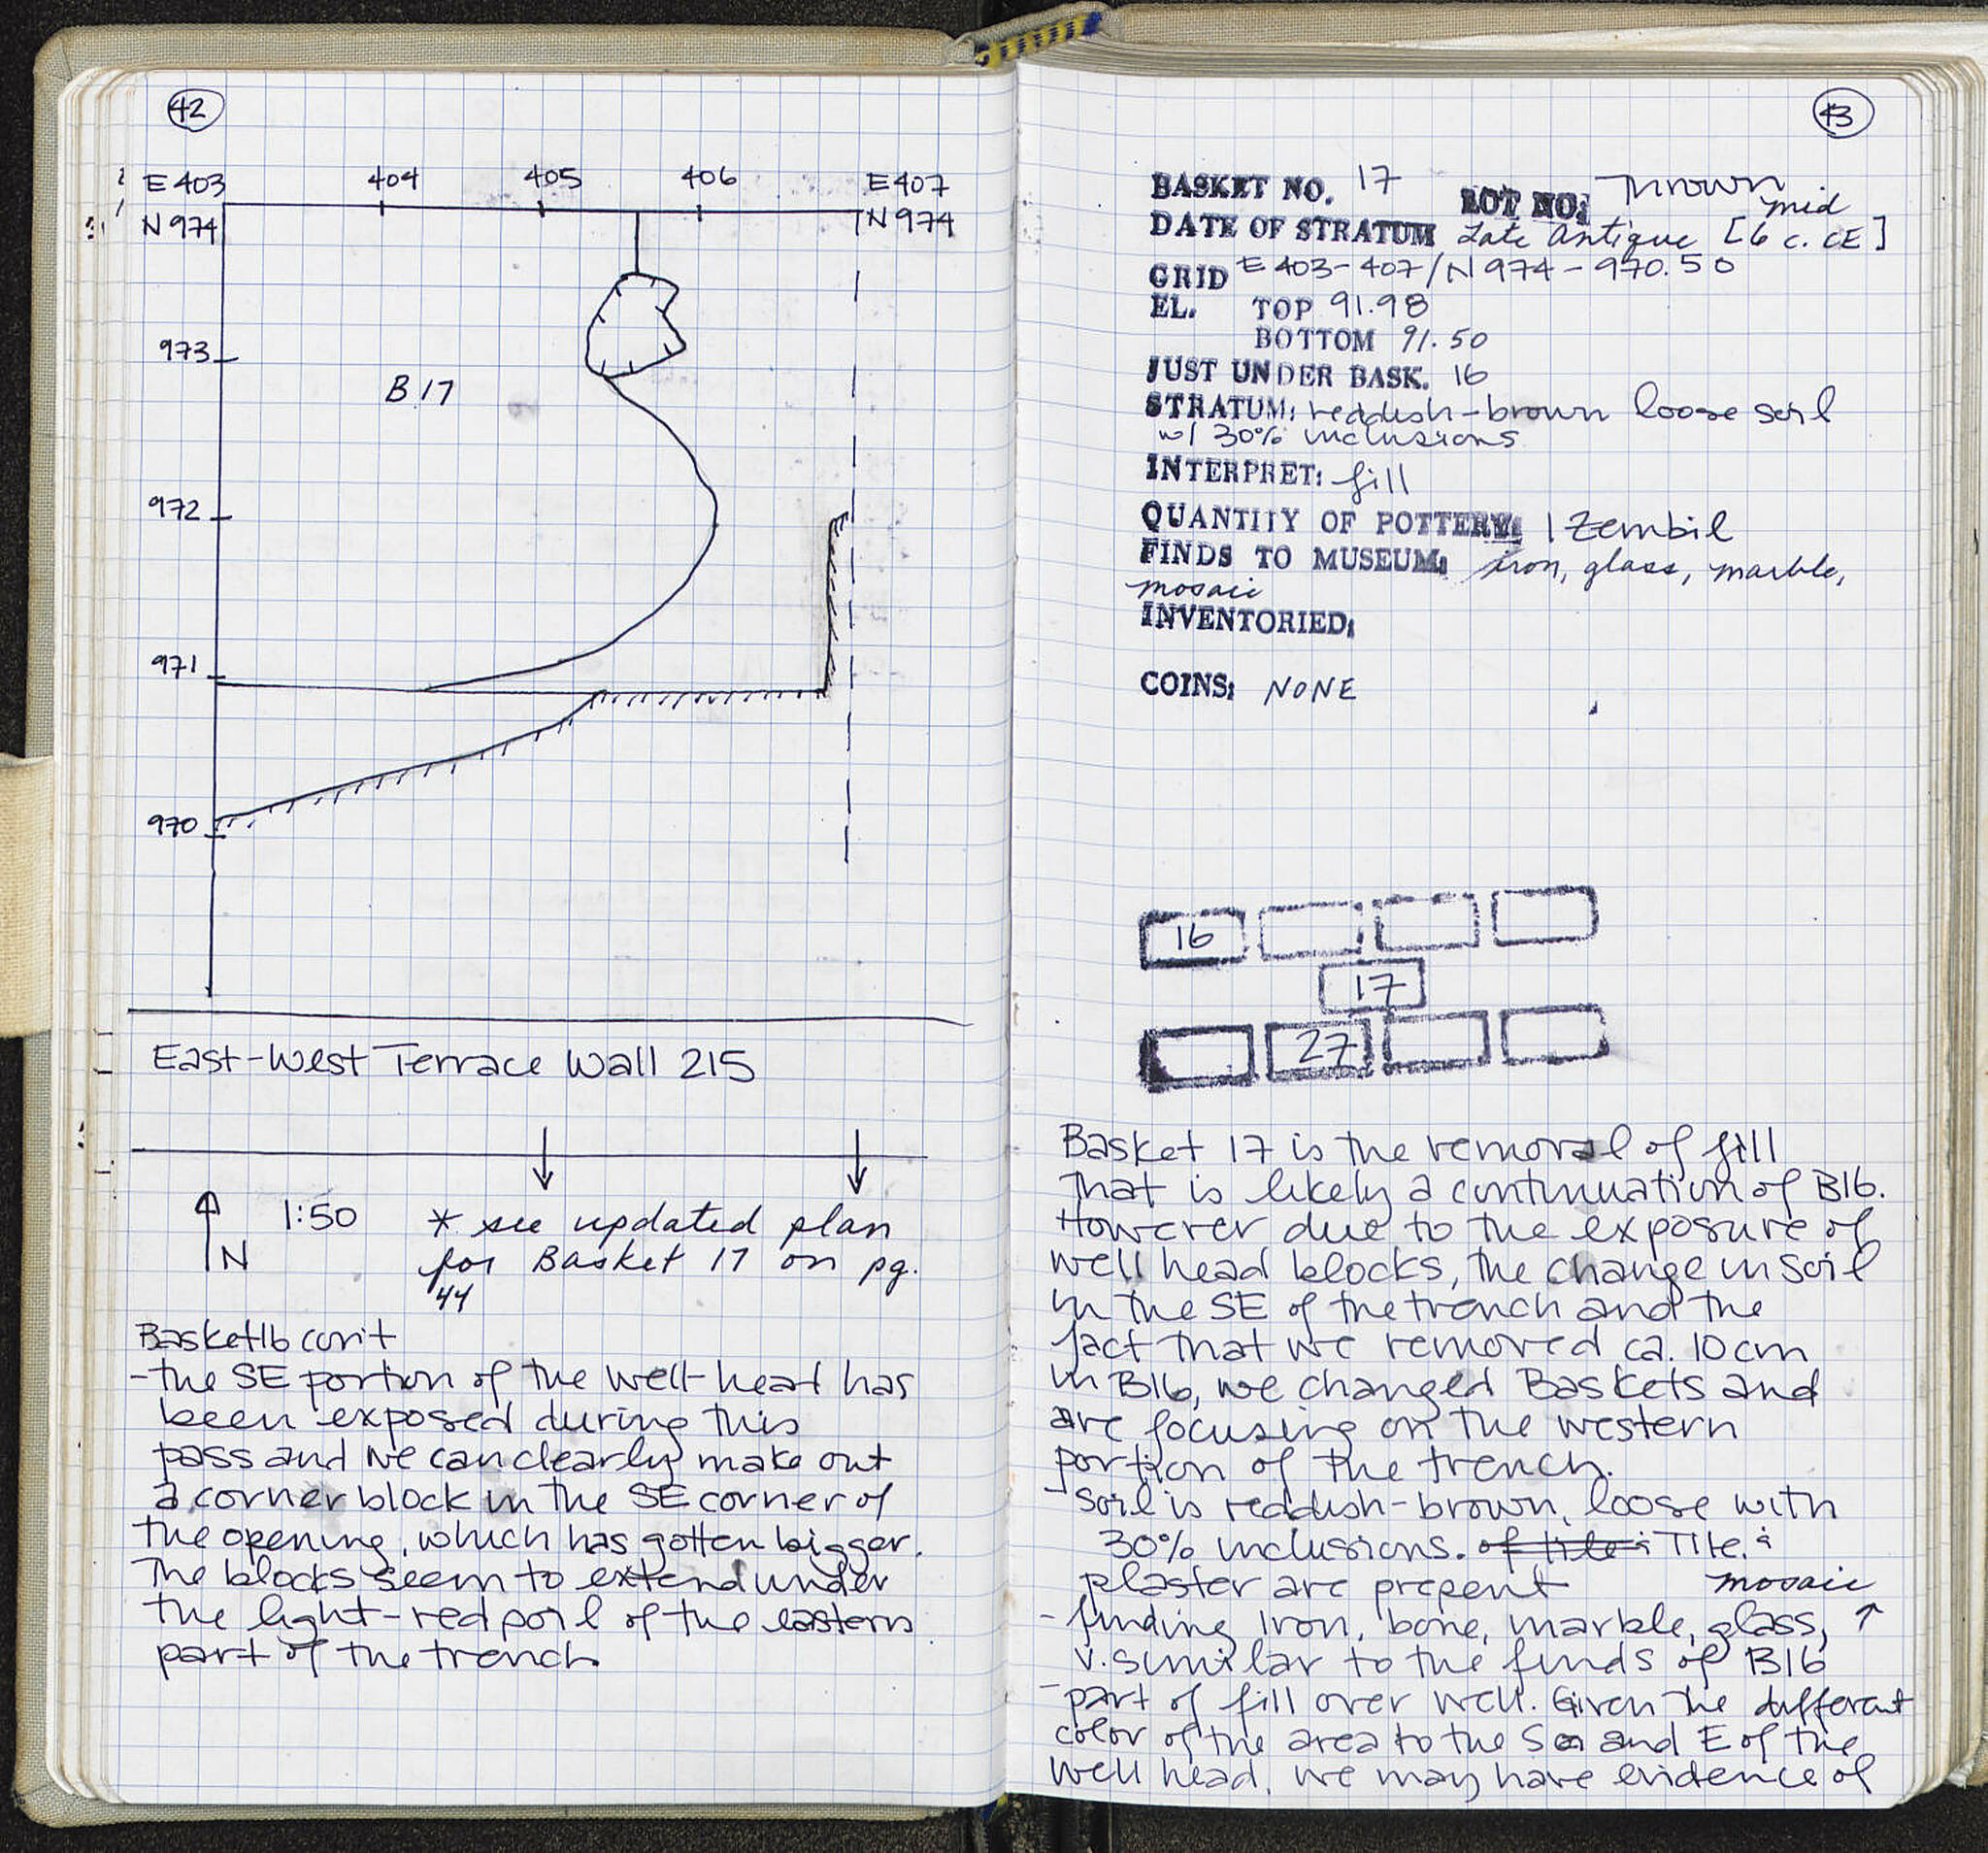 42
E 403 404 405 406 E 407
N 974 N 974
973
B 17
972
971
970
East-West Terrace Wall 215
N 1:50 * see updated plan
for Basket 17 on pg.
44
Basket 16 con't
- the SE portion of the well-head has
been exposed during this
pass and we can clearly make out
a corner block in the SE corner of
the opening, which has gotten bigger.
The blocks seem to extend under
the light-red soil of the eastern
part of the trench.
43
BASKET NO. 17 LOT NO: Thrown
DATE OF STRATUM Late Antique [6 c. CE] mid
GRID E 403-407/N 974-970.50
EL. TOP 91.98
BOTTOM 91.50
JUST UNDER BASK. 16
STRATUM: reddish-brown loose soil
w/ 30% inclusions
INTERPRET: fill
QUANTITY OF POTTERY: 1 Zembil
FINDS TO MUSEUM: iron, glass, marble,
mosaic
INVENTORIED:
COINS: NONE
16
17
27
Basket 17 is the removal of fill
that is likely a continuation of B16.
However due to the exposure of
well head blocks, the change in soil
in the SE of the trench and the
fact that we removed ca. 10 cm
in B16, we changed Baskets and
are focusing on the western
portion of the trench.
- soil is reddish-brown, loose with
30% inclusions. of tile & Tile &
plaster are present mosaic
- finding Iron, bone, marble, glass, ↑
v. similar to the finds of B16
- part of fill over well. Given the different
color of the area to the S and E of the
well head, we may have evidence of